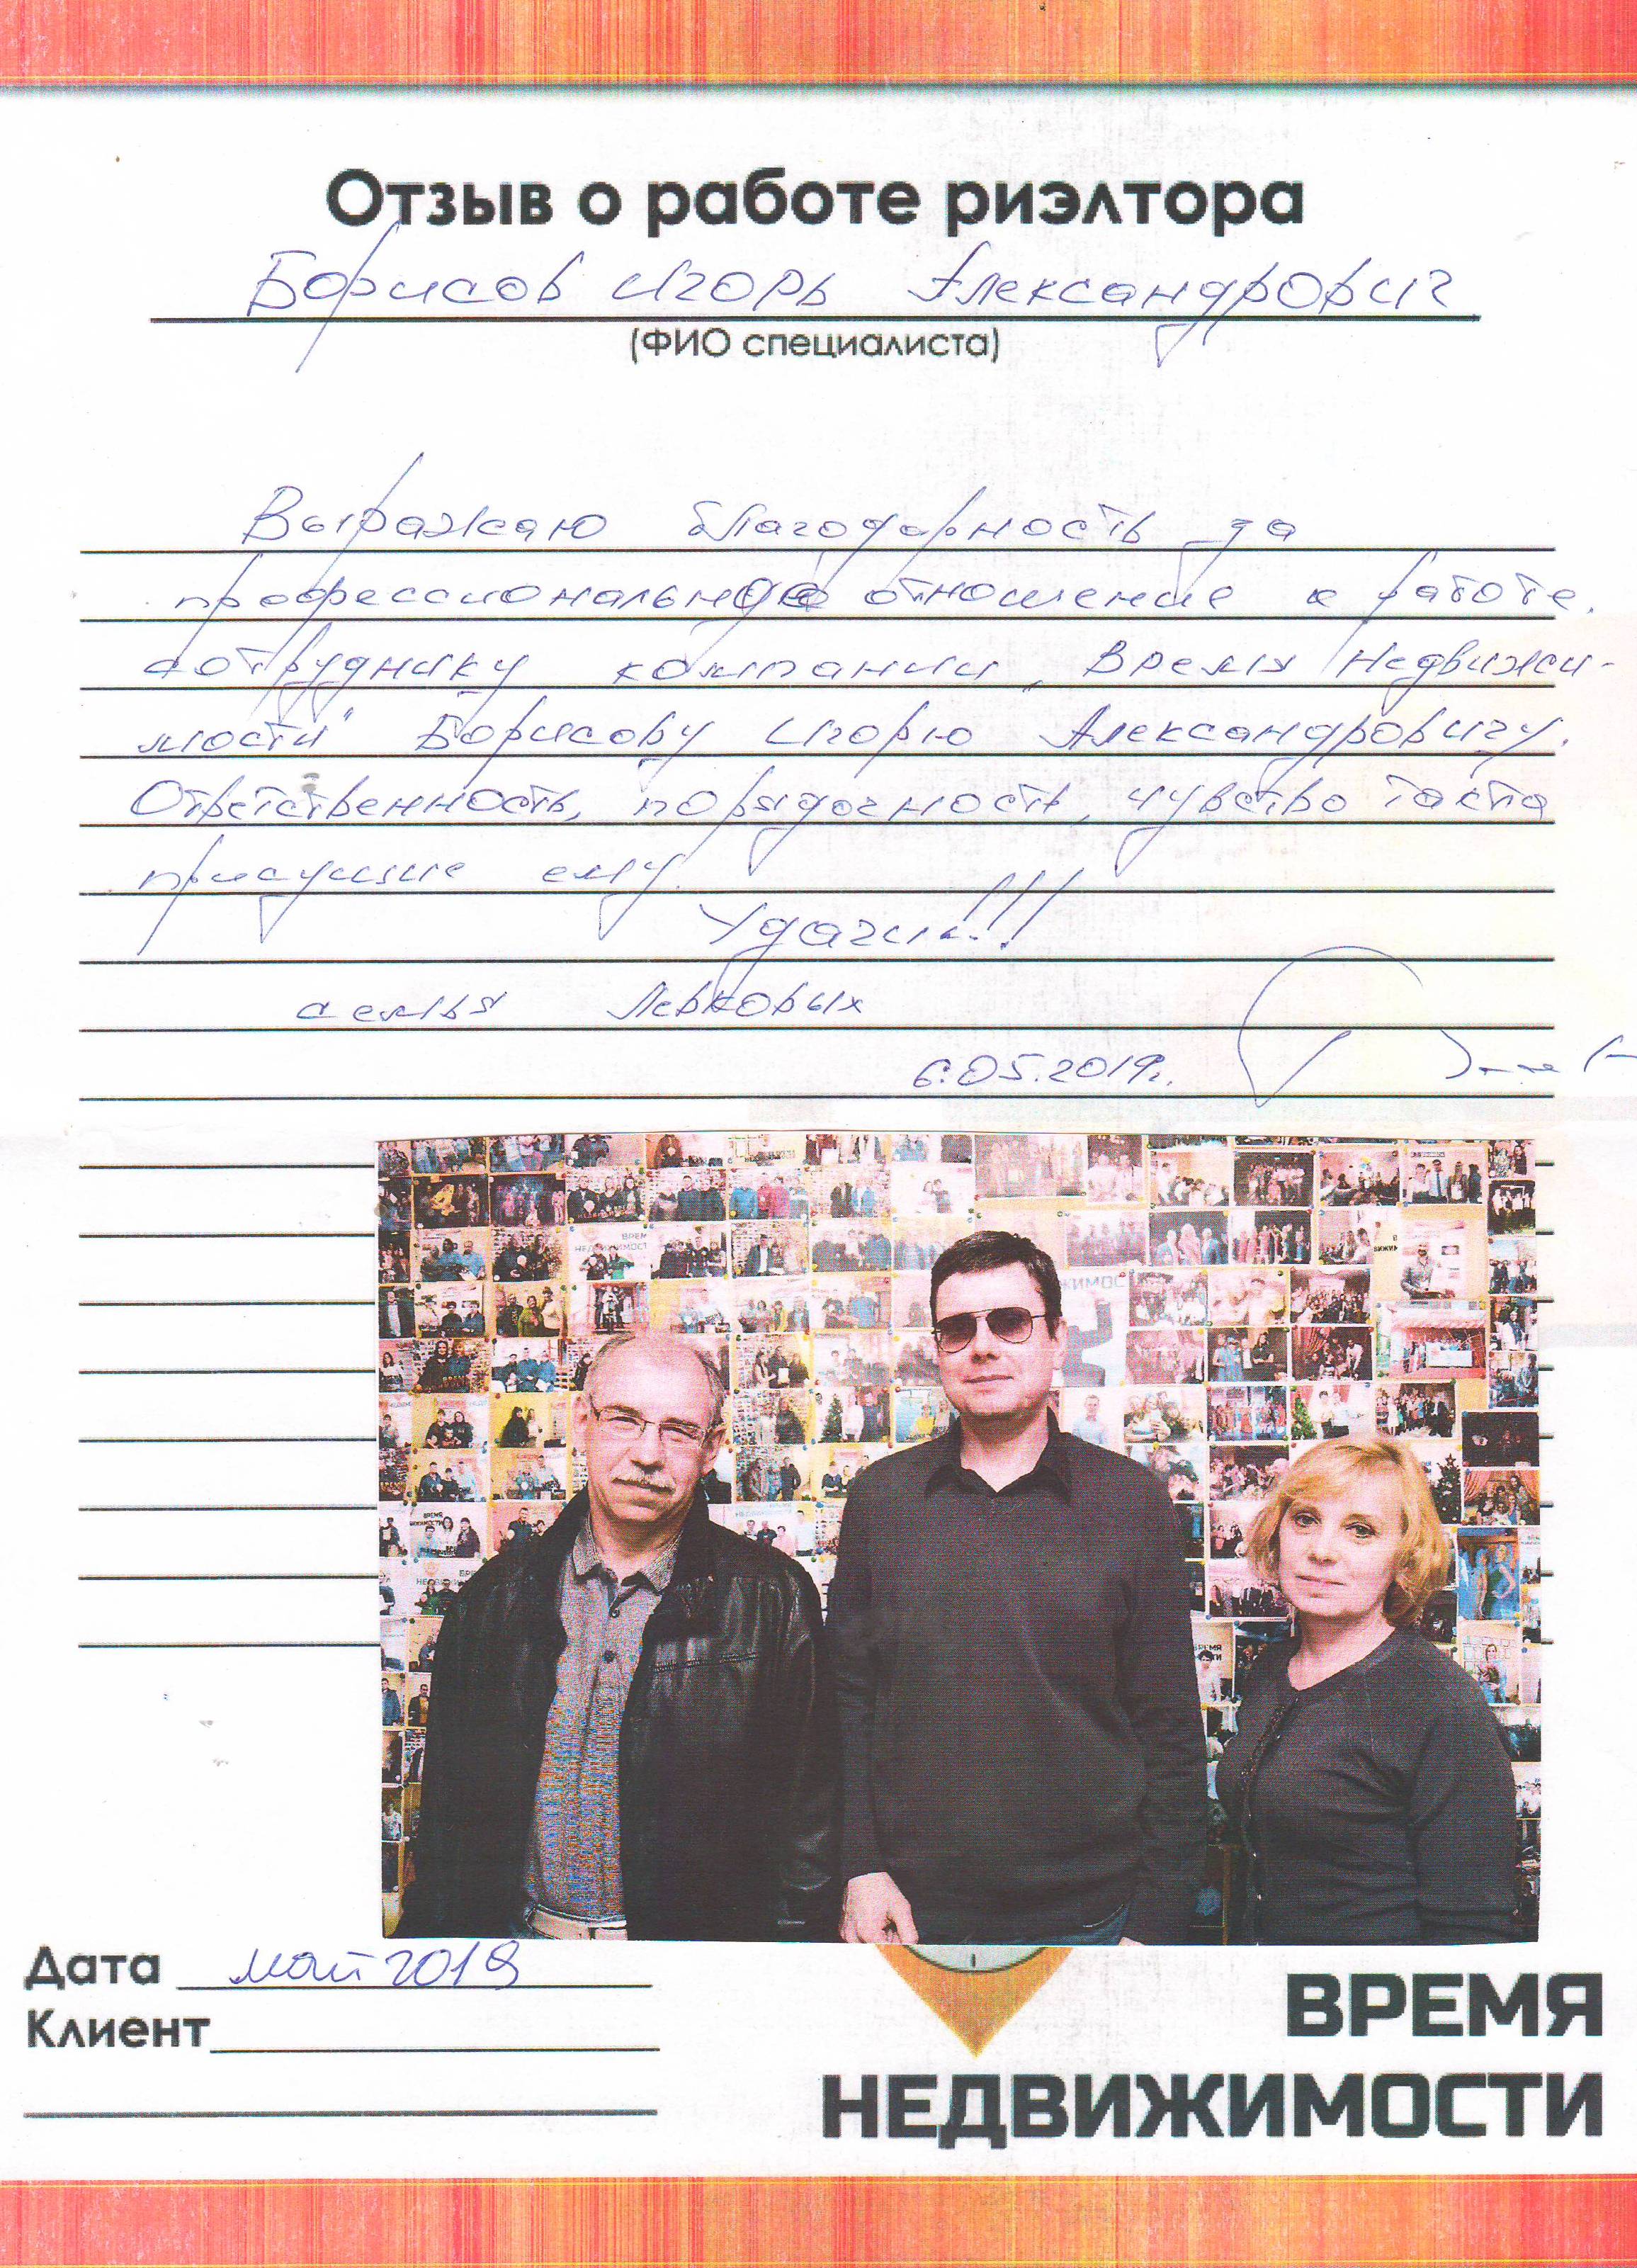 Отзыв о работе риэлтора
Борисов Игорь Александрович
(ФИО специалиста)
Выражаю благодарность за
профессиональное отношение к работе.
сотруднику компании „Время Недвижи-
мости" Борисову Игорю Александровичу.
Ответственность, порядочность, чувство такта
присущие ему.
Удачи...!!!
семья Левковых
6.05.2019г.
ВРЕМЯ
НЕДВИЖИМОСТИ
Дата май 2019
Клиент
ВРЕМЯ
НЕДВИЖИМОСТИ